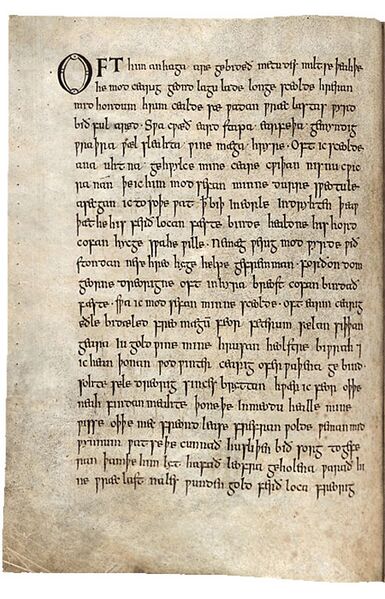 OFT him anhaga are gebideð metudes miltse þeah þe
he mod cearig geond lagu lade longe sceolde hreran
mid hondum hrim cealde sæ wadan wræc lastas wyrd
bið ful aræd · Swa cwæð eard stapa earfeþa gemyndig
wraþra wæl sleahta wine mæga hryre · Oft ic sceolde
ana uhtna gehwylce mine ceare cwiþan nis nu cwic
ra nan þe ic him mod sefan minne durre sweotule
asecgan ic to soþe wat þ̅ biþ in eorle indryhten þeaw
þæt he his ferð locan fæste binde healdne his hord
cofan hycge swa he wille · Ne mæg werig mod wyrde wið
stondan ne se hreo hyge helpe gefremman · forðon dom
georne dreorigne oft in hyra breost cofan bindað
fæste · swa ic mod sefan minne sceolde · oft earm cearig
eðle bidæled freo magū feor feterum sælan siþþan
geara iu gold wine mine hrusan heolstre biwrah ⁊
ic hean þonan wod winter cearig ofer waþena gebind ·
sohte sele dreorig sinces bryttan hwær ic feor oþþe
neah findan meahte þone þe in meodu healle mine
wisse oþþe mec freond lease frefran wolde weman mid
wynnum wat se þe cunnað hu sliþen bið sorg to gefe
ran þam þe him lyt hafað leofra geholena warað hi
ne wræc last nales wunden gold ferð loca freorig